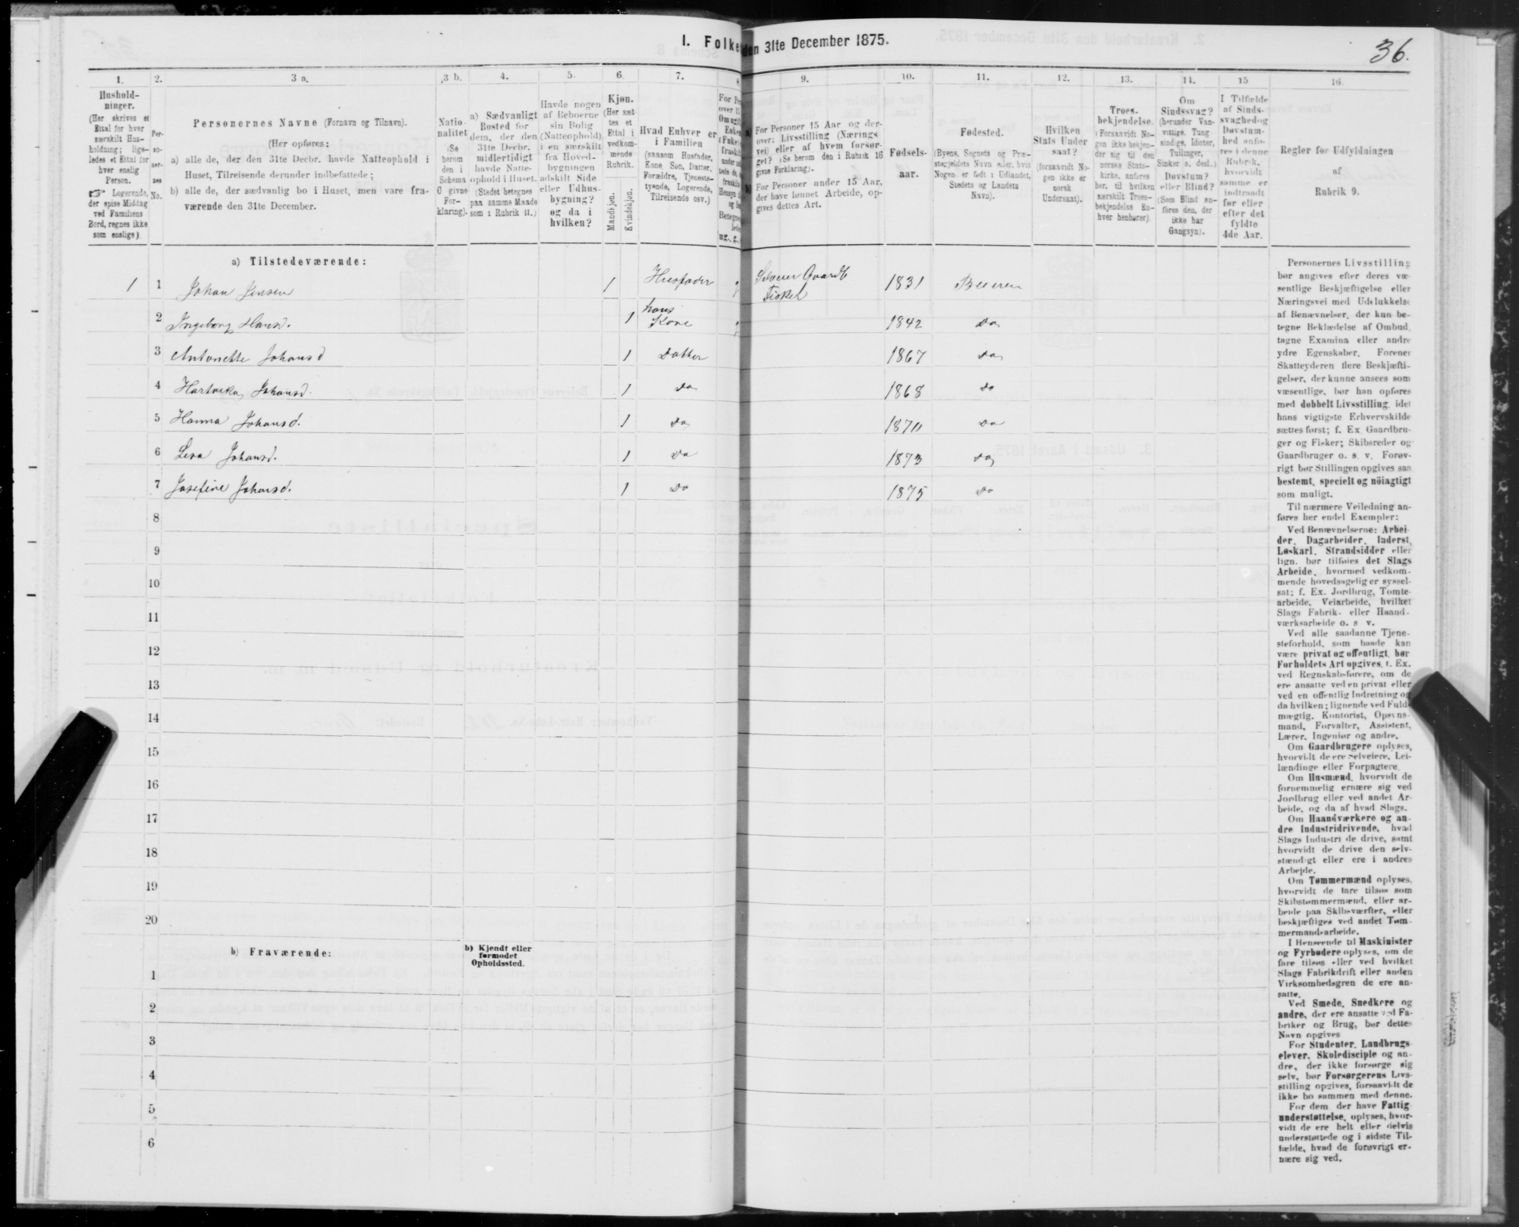 I. Folke
en 31te December 1875.
36.
1.
2.
3 a.
3 b.
4.
5.
6.
7.
8
9.
10.
11.
12.
13.
14.
15
16
Hushold-
ninger.
(Her skrives et
Ettal for hver
særskilt Hus-
holdning; lige-
ledes et Ettal for
hver enslig
Person.
Logerende,
der spise Middag
ved Familiens
Bord, regnes ikke
som enslige).
Per-
so-
ner-
nes
No.
Personernes Navne (Fornavn og Tilnavn).
(Her opføres:
a) alle de, der den 31te Decbr. havde Natteophold i
Huset, Tilreisende derunder indbefattede;
b) alle de, der sædvanlig bo i Huset, men vare fra-
værende den 31te December.
Natio-
nalitet
(Se
herom
den i
Schema
C givne
For-
klaring).
a) Sædvanligt
Bosted for
dem, der den
31te Decbr.
midlertidigt
havde Natte-
ophold i Huset.
(Stedet betegnes
paa samme Maade
som i Rubrik 11.)
Havde nogen
af Beboerne
sin Bolig
(Natteophold)
i en særskilt
fra Hoved-
bygningen
adskilt Side
eller Udhus-
bygning?
og da i
hvilken?
Kjøn.
(Her sæt-
tes et
Ettal i
vedkom-
mende
Rubrik.
Mandkjøn.
Kvindekjøn.
Hvad Enhver er
i Familien
(saasom Husfader,
Kone, Søn, Datter,
Forældre, Tjeneste-
tyende, Logerende,
Tilreisende osv.)
a) For Personer 15 Aar og der-
over: Livsstilling (Nærings-
vei) eller af hvem forsør-
get? (Se herom den i Rubrik 16
givne Forklaring).
b) For Personer under 15 Aar,
der have lønnet Arbeide, op-
gives dettes Art.
Fødsels-
aar.
Fødested.
(Byens, Sognets og Præ-
stegjeldets Navn eller, hvis
Nogen er født i Udlandet,
Stedets og Landets
Navn).
Hvilken
Stats Under
saat?
(forsaavidt No-
gen ikke er
norsk
Undersaat).
Troes-
bekjendelse.
(Forsaavidt No-
gen ikke bekjen-
der sig til den
norske Stats-
kirke, anføres
her, til hvilken
særskilt Troes-
bekjendelse En-
hver henhører).
Om
Sindssvag?
(herunder Van-
vittige, Tung
sindige, Idioter,
Tullinger,
Sinker o. desl.).
Døvstum?
eller Blind?
(Som Blind an-
føres den, der
ikke har
Gangsyn).
I Tilfælde
af Sinds-
svaghed og
Døvstum-
hed anfø-
res i denne
Rubrik,
hvorvidt
samme er
indtraadt
før eller
efter det
fyldte
4de Aar.
Regler for Udfyldningen
af
Rubrik 9.
a) Tilstedeværende:
1 1 Johan Jensen 1 Husfader g Selveier Gaardb Fisker 1831 Beieren
2 Ingeborg Hansd. 1 hans Kone g 1842 Do
3 Antonette Johansd 1 Datter 1867 Do
4 Hartvika Johansd. 1 Do 1868 Do
5 Hanna Johansd. 1 Do 1870 Do
6 Lina Johansd. 1 Do 1873 Do
7 Josefine Johansd. 1 Do 1875 Do
8
9
10
11
12
13
14
15
16
17
18
19
20
b) Fraværende:
b) Kjendt eller
formodet
Opholdssted.
1
2
3
4
5
6
Personernes Livsstilling
bør angives efter deres væ-
sentlige Beskjæftigelse eller
Næringsvei med Udelukkelse
af Benævnelser, der kun be-
tegne Beklædelse af Ombud,
tagne Examina eller andre
ydre Egenskaber. Forener
Skatteyderen flere Beskjæfti-
gelser, der kunne ansees som
væsentlige, bør han opføres
med dobbelt Livsstilling, idet
hans vigtigste Erhvervskilde
sættes først; f. Ex Gaardbru-
ger og Fisker; Skibsreder og
Gaardbruger o. s. v. Forøv-
rigt bør Stillingen opgives saa
bestemt, specielt og nøiagtigt
som muligt.
Til nærmere Veiledning an-
føres her endel Exempler:
Ved Benævnelserne: Arbei-
der, Dagarbeider, Inderst,
Løskarl, Strandsidder eller
lign. bør tilføies det Slags
Arbeide, hvormed vedkom-
mende hovedsagelig er syssel-
sat; f. Ex. Jordbrug, Tomte-
arbeide, Veiarbeide, hvilket
Slags Fabrik- eller Haand-
værksarbeide o. s v.
Ved alle saadanne Tjene-
steforhold, som baade kan
være privat og offentligt, bør
Forholdets Art opgives, f. Ex.
ved Regnskabsførere, om de
ere ansatte ved en privat eller
ved en offentlig Indretning og
da hvilken; lignende ved Fuld-
mægtig, Kontorist, Opsyns-
mand, Forvalter, Assistent,
Lærer, Ingeniør og andre.
Om Gaardbrugere oplyses,
hvorvidt de ere Selveiere, Lei-
lændinge eller Forpagtere.
Om Husmænd, hvorvidt de
fornemmelig ernære sig ved
Jordbrug eller ved andet Ar-
beide, og da af hvad Slags.
Om Haandværkere og an-
dre Industridrivende, hvad
Slags Industri de drive, samt
hvorvidt de drive den selv-
stændigt eller ere i andres
Arbejde.
Om Tømmermænd oplyses,
hvorvidt de fare tilsøs som
Skibstømmermænd, eller ar-
beide paa Skibsværfter, eller
beskjæftiges ved andet Tøm-
mermandsarbeide.
I Henseende til Maskinister
og Fyrbødere oplyses, om de
fare tilsøs eller ved hvilket
Slags Fabrikdrift eller anden
Virksomhedsgren de ere an-
satte.
Ved Smede, Snedkere og
andre, der ere ansatte ved Fa-
briker og Brug, bør dettes
Navn opgives
For Studenter, Landbrugs-
elever, Skoledisciple og an-
dre, der ikke forsørge sig
selv, bør Forsørgerens Livs-
stilling opgives, forsaavidt de
ikke bo sammen med denne.
For dem der have Fattig-
understøttelse, oplyses, hvor-
vidt de ere helt eller delvis
understøttede og i sidste Til-
fælde, hvad de forøvrigt er-
nære sig ved.